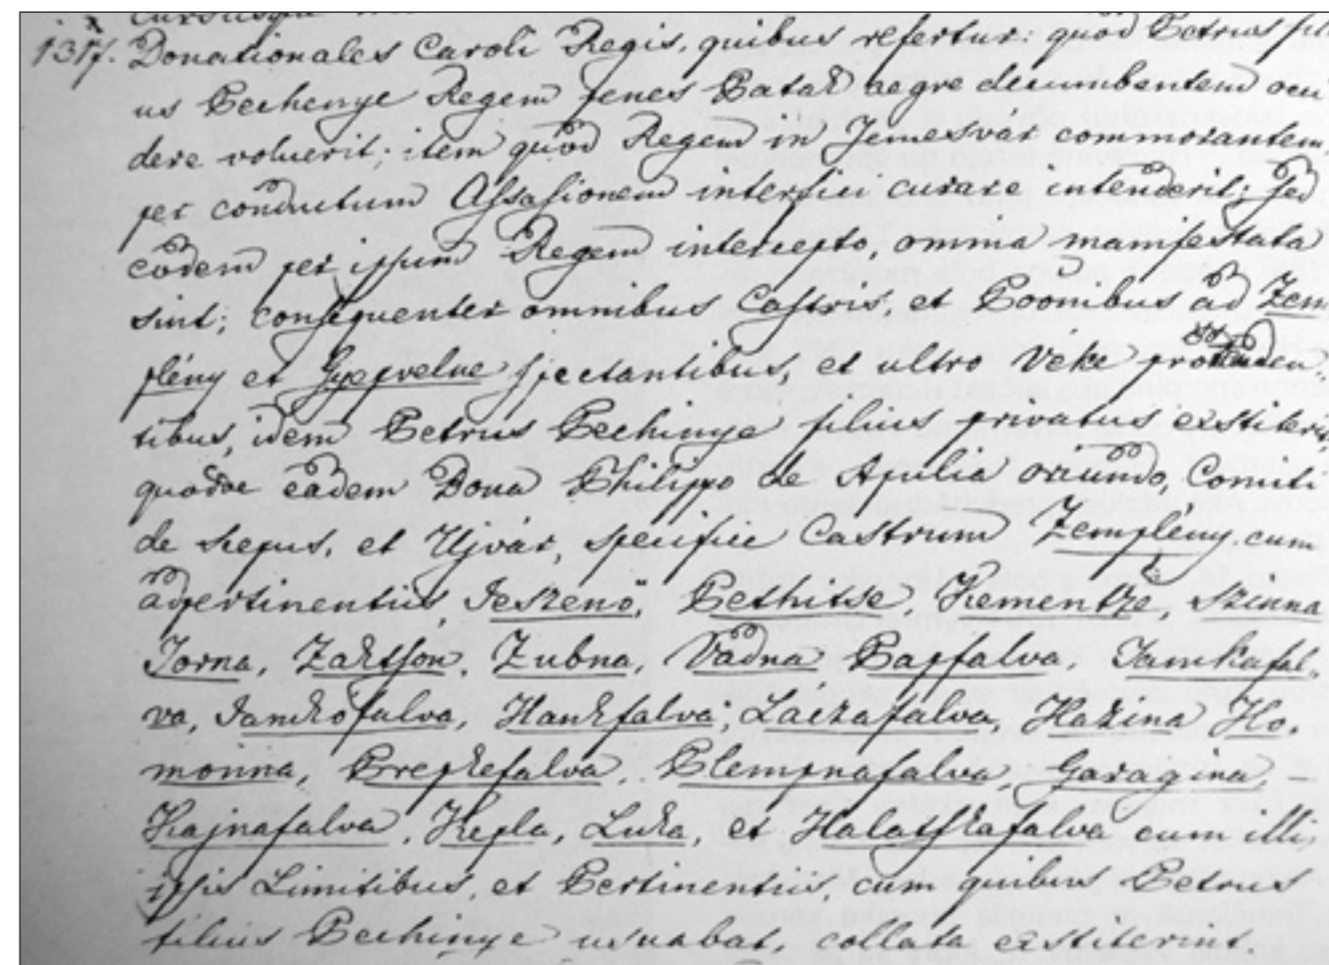 1317. Donationales Caroli Regis, quibus refertur: quod Petrus fili
us Pechenye Regem penes Patak aegre decumbentem occi
dere voluerit; item quod Regem in Temesvár commorantem,
per conductum Assassionem interfici curare intenderit; sed
eodem per ipsum Regem intercepto, omnia manifestata
sint; consequenter omnibus Castris, et Bonibus ad Zem
plény et Gyepvelue spectantibus, et ultro Veke
tibus, idem Petrus Pechinye filius privatus exstiterit,
quodve eadem Bona Philippo de Apulia oriundo, Comiti
de Scepus, et Ujvár, specifice Castrum Zemplény cum
adpertinentiis, Jeszenö, Pethitse, Kementze, Szinna
Torna, Zaktson, Zubna, Vadna Papfalva, Jamkafal-
va, Jankófalva, Hankfalva; Láczafalva, Hazina Ho-
monna, Prepkefalva, Plempnafalva, Garagina, -
Kajnafalva, Kepla, Luka, et Halatskafalva cum illi,
ipsis Limitibus, et Pertinentiis, cum quibus Petrus
filius Pechinye usuabat, collata exstiterint.